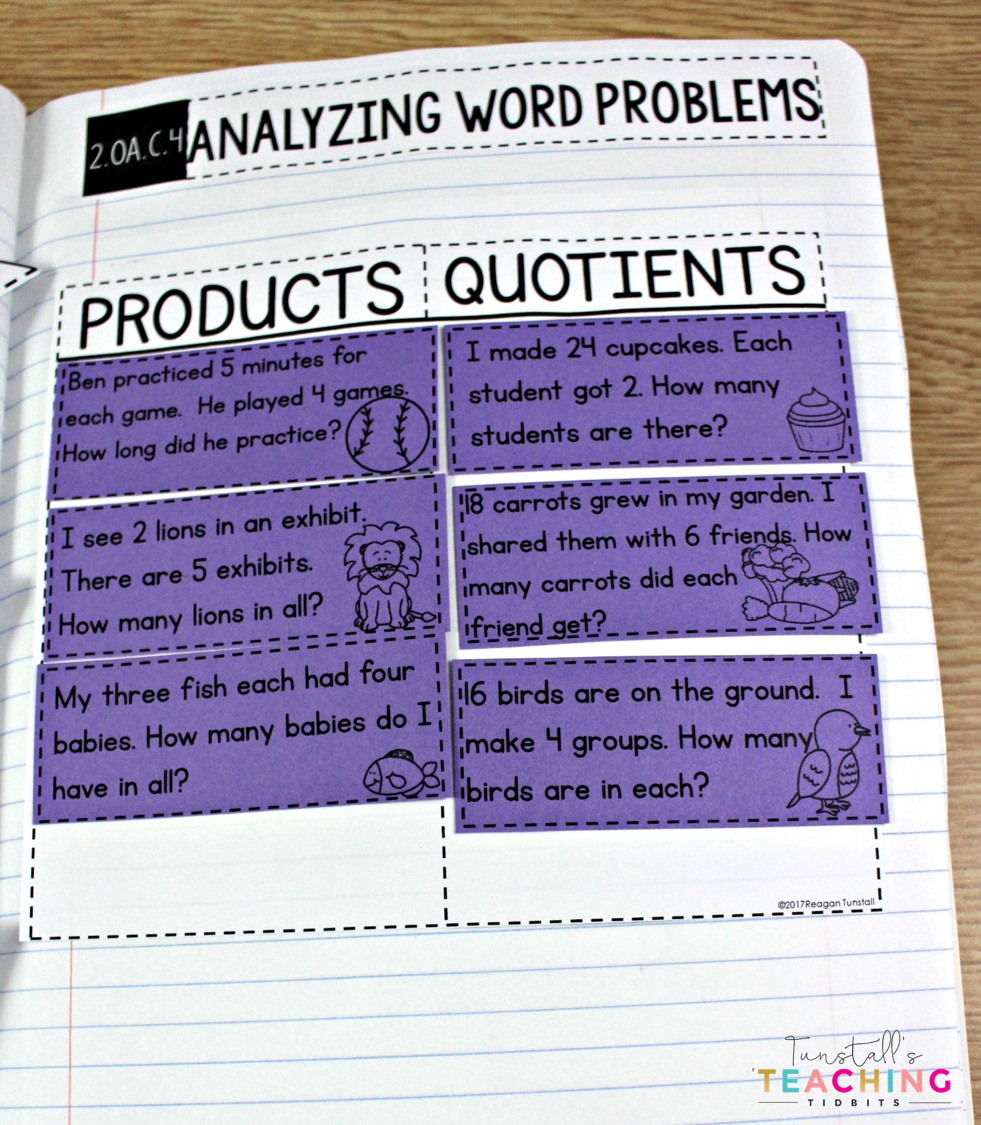 2.OA.C.4 ANALYZING WORD PROBLEMS
PRODUCTS
Ben practiced 5 minutes for
each game. He played 4 games.
How long did he practice?
I see 2 lions in an exhibit.
There are 5 exhibits.
How many lions in all?
My three fish each had four
babies. How many babies do I
have in all?
QUOTIENTS
I made 24 cupcakes. Each
student got 2. How many
students are there?
18 carrots grew in my garden. I
shared them with 6 friends. How
many carrots did each
friend get?
16 birds are on the ground. I
make 4 groups. How many
birds are in each?
©2017Reagan Tunstall
Tunstall's
TEACHING
TIDBITS